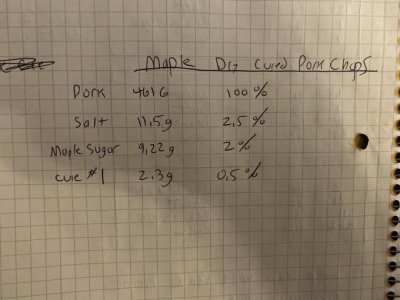 Maple Dry Cured Pork Chops
Pork 461G 100%
Salt 11.5g 2.5%
Maple Sugar 9.22g 2%
Cure #1 2.3g 0.5%